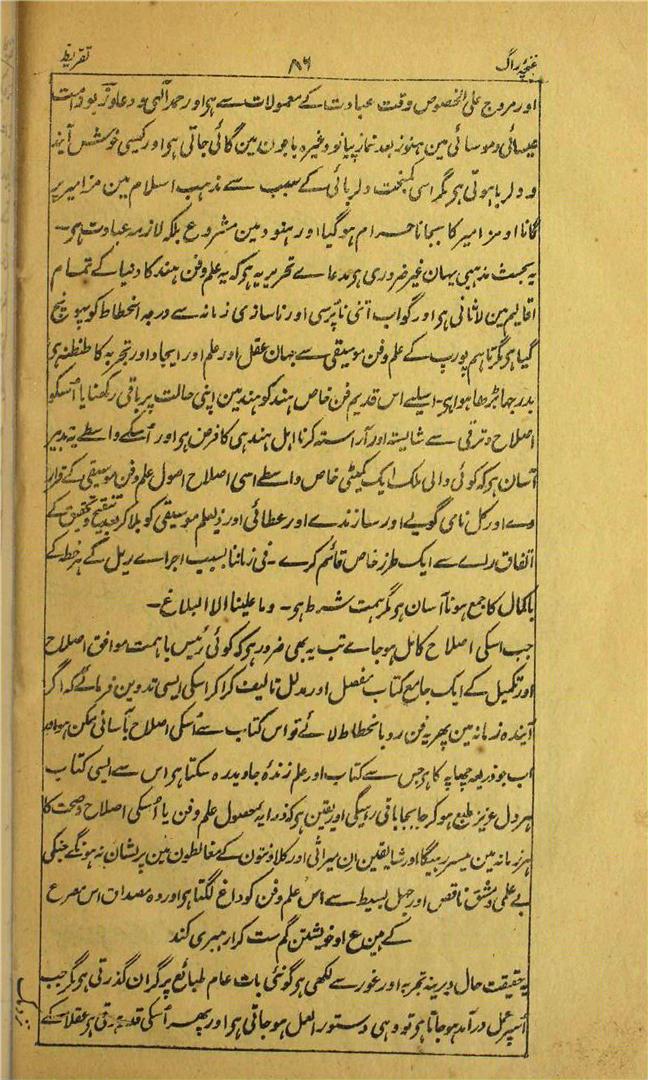 غنچۂ راگ ۸۶ تقریظ
اور مروج علی الخصوص وقت عبادت کے معمولات سے ہی اور حمد آلٰہی و دعا و
عیسائی و موسائی مین ہنوز بعد نماز پیانو وغیرہ باجون مین گائی جاتی ہی اور کیسی خوش آیند
و دلربا ہوتی ہی مگر اسی کمبخت دلربائی کے سبب سے مذہب اسلام مین مزامیر پر
گانا او مزامیر کا بجانا حرام ہوگیا اور ہنود مین مشروع بلکہ لازمہ عبادت ہی۔
یہ بحث مذہبی یہان غیر ضروری ہی مدعاے تحریر یہ ہی کہ یہ علم و فن ہند کا دنیا کے تمام
اقالیم مین لاثانی ہی اور گو اب اتنی ناپرسی اور ناسازی زمانہ سے درجہ انحطاط کو پہونچ
گیا ہی مگر تاہم یورپ کے علم و فن موسیقی سے یہان عقل اور علم اور ایجاد اور تجربہ کا طنطنہ ہی
بدرجہا بڑھا ہوا ہی۔ اسلیے اس قدیم فن خاص ہند کو ہند مین اپنی حالت پر باقی رکھنا یا اُسکو
اصلاح و ترقی سے شایستہ اور آراستہ کرنا اہل ہند ہی کا فرض ہی اور اُسکے واسطے یہ تدبیر
آسان ہی کہ کوئی والی ملک ایک کمیٹی خاص واسطے اسی اصلاح اصول علم و فن موسیقی کے قرار
دے اور کل نامی گویے اور سازندے اور عطائی اور ذیعلم موسیقی کو بلا کر بعد تنقیح و تحقیق کے
اتفاق راے سے ایک طرز خاص قائم کرے۔ فی زماننا بسبب اجراے ریل کے ہر خطہ کے
باکمال کا جمع ہونا آسان ہی مگر ہمت شرط ہی۔ وما علینا الا البلاغ۔
جب اسکی اصلاح کامل ہوجاے تب یہ بھی ضرور ہی کہ کوئی رئیس باہمت موافق اصلاح
اور تکمیل کے ایک جامع کتاب مفصل اور مدلل تالیف کرا کر اسکی ایسی تدوین فرمائے کہ اگر
آیندہ زمانہ مین پھر یہ فن رو بانحطاط لائے تو اس کتاب سے اُسکی اصلاح بآسانی ممکن ہو اور
اب جو ذریعہ چھاپہ کا ہی جس سے کتاب اور علم زندۂ جاوید رہ سکتا ہی اس سے ایسی کتاب
ہر دل عزیز طبع ہوکر جابجا باقی رہیگی اور یقین ہی کہ ذرایعہ حصول علم و فن یا اُسکی اصلاح و صحت کا
ہر زمانہ مین میسر رہیگا اور شایقین ان میراثی اور کلاونتون کے مغالطون مین پریشان نہ ہونگے جنکی
بے علمی و مشق ناقص اور جہل بسیط سے اس علم و فن کو داغ لگتا ہی اور وہ مصداق اس مصرع
کے ہین ع او خویشتن گم ست کرا رہبری کند
یہ حقیقت حال دیرینہ تجربہ اور غور سے لکھی ہی گو نئی بات عام طبائع پر گران گذرتی ہی مگر جب
اُسپر عمل درآمد ہو جاتا ہی تو وہی دستور العمل ہو جاتی ہی اور پھر اُسکی قدر عقلا کے